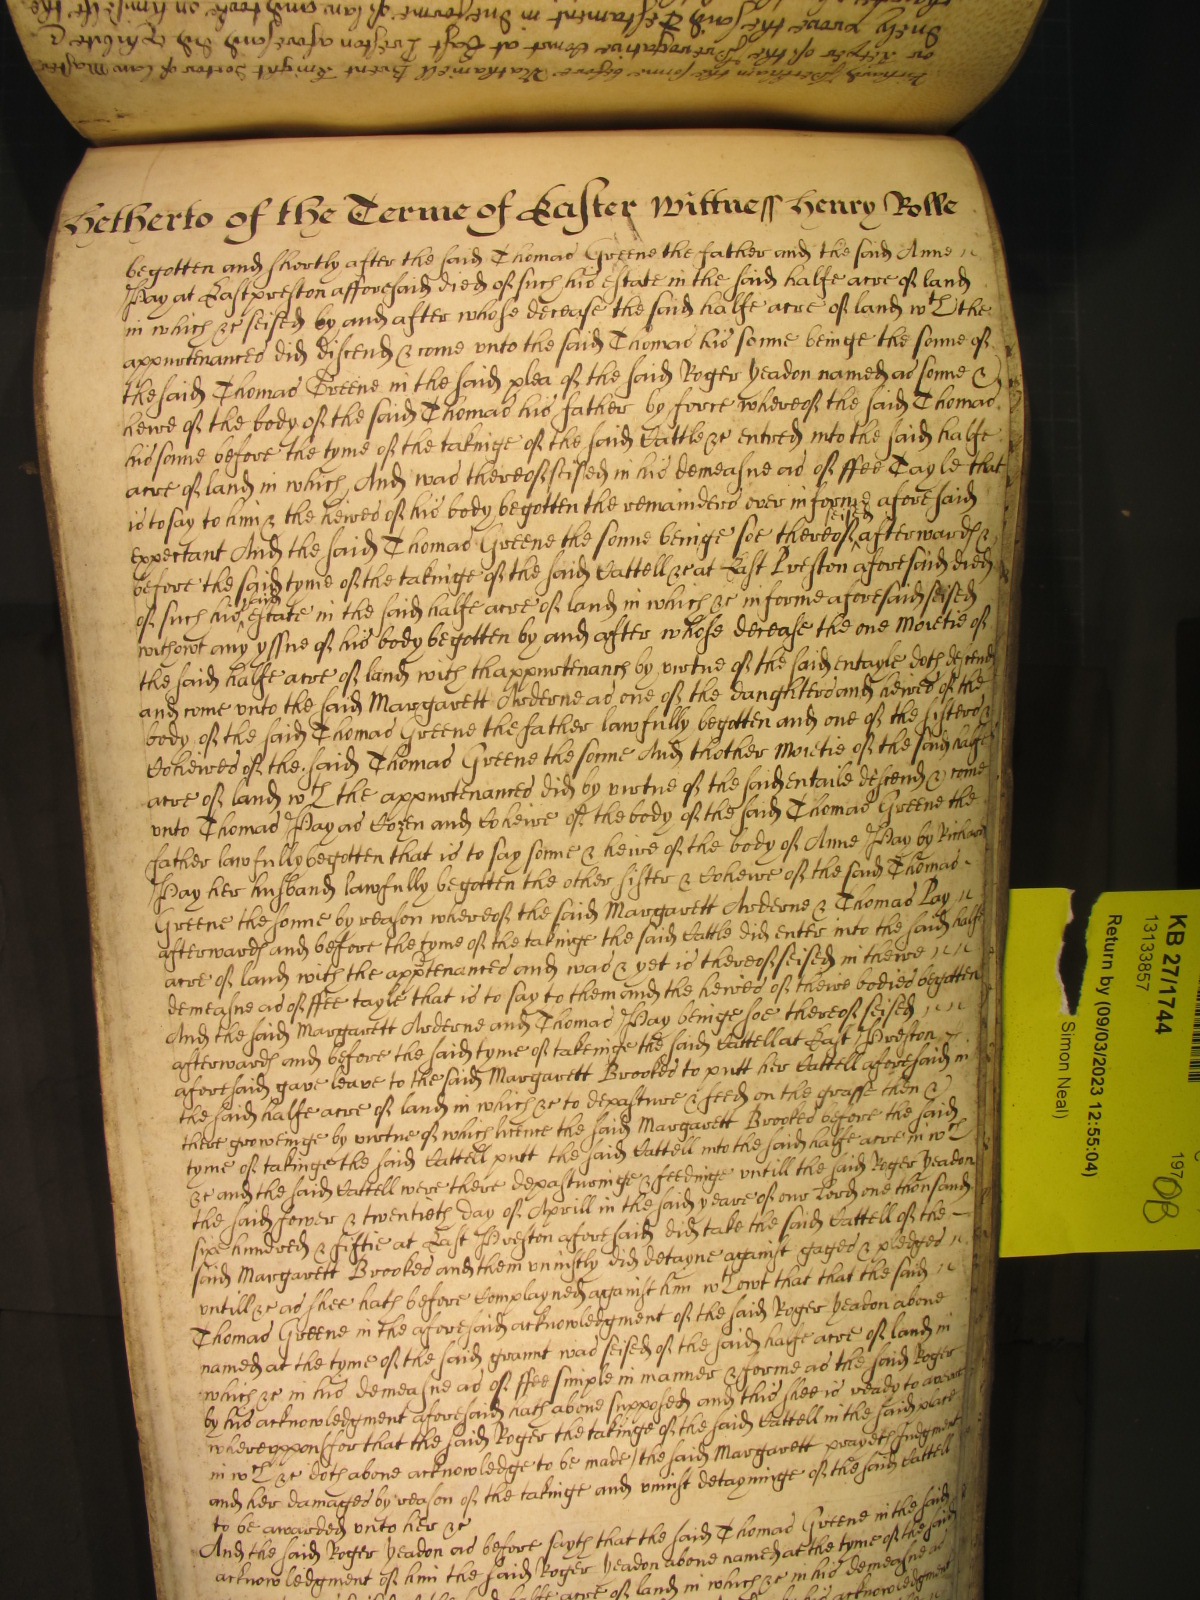 Hetherto of the Terme of Easter Wittness Henry Rolle
begotten and shortly after the said Thomas Greene the father and the said Anne
Pay at Eastpreston afforesaid died of such his estate in the said halfe acre of land
in which &c seised by and after whose decease the said halfe acre of land wth the
appurtenances did discend & come unto the said Thomas his sonne beinge the sonne of
the said Thomas Greene in the said plea of the said Roger Yeadon named as sonne &
heire of the body of the said Thomas his father by force whereof the said Thomas
his sonne before the tyme of the takinge of the said Cattle &c entred into the said halfe
acre of land in which, And was thereof seised in his demeasne as of ffee Tayle that
is to say to him & the heires of his body begotten the remainders over in forme aforesaid
expectant And the said Thomas Greene the sonne beinge soe thereof seised afterwards &
before the said tyme of the takinge of the said Cattell &c at East Preston aforesaid died
of such his said estate in the said halfe acre of land in which &c in forme aforesaid seised
without any yssue of his body begotten by and after whose decease the one moietie of
the said halfe acre of land with thappurtenancs by virtue of the said entayle doth descend
and come unto the said Margarett Arderne as one of the daughters and heires of the
body of the said Thomas Greene the father lawfully begotten and one of the sisters &
Coheires of the said Thomas Greene the sonne And thother moietie of the said halfe
acre of land wth the appurtenances did by virtue of the said entaile descend & come
unto Thomas Pay as Cozen and Coheire of the body of the said Thomas Greene the
father lawfully begotten that is to say sonne & heire of the body of Anne Pay by Richard
Pay her husband lawfully begotten the other sister & Coheire of the said Thomas
Greene the sonne by reason whereof the said Margarett Arderne & Thomas Pay
afterwards and before the tyme of the takinge the said Cattle did enter into the said halfe
acre of land with the apptenances and was & yet is thereof seised in theire
demeasne as of ffee tayle that is to say to them and the heires of theire bodies begotten
And the said Margarett Arderne and Thomas Pay beinge soe thereof seised
afterwards and before the said tyme of takeinge the said Cattell at East Preston
aforesaid gave leave to the said Margarett Brookes to putt her Cattell aforesaid in
the said halfe acre of land in which &c to depasture & feed on the grasse then &
there groweinge by virtue of which licence the said Margarett Brookes before the said
tyme of takinge the said Cattell putt the said Cattell into the said halfe acre in wch
&c and the said Cattell were there depasturinge & feedinge untill the said Roger Yeadon
the said fower & twentieth day of Aprill in the said yeare of our Lord one thousand
sixe hundred & fiftie at East Preston aforesaid did take the said Cattell of the
said Margarett Brookes and them uniustly did detayne against gages & pledges
untill &c as shee hath before Complayned against him wthowt that that the said
Thomas Greene in the aforesaid acknowledgment of the said Roger Yeadon above
named at the tyme of the said graunt was seised of the said halfe acre of land in
which &c in his demeasne as of ffee simple in manner & forme as the said Roger
by his acknowledgment aforesaid hath above supposed and this shee is ready to averre
whereuppon (for that the said Roger the takinge of the said Cattell in the said place
in wch &c doth above acknowledge to be made) the said Margarett prayeth Judgment
and her damages by reason of the takinge and uniust detayninge of the said Cattell
to be awarded unto her &c
And the said Roger Yeadon as before sayth that the said Thomas Greene in the said
acknowledgment of him the said Roger Yeadon above named at the tyme of the said
halfe acre of land in which &c in his demeasne as
KB 27/1744
13133857
Return by (09/03/2023 12:55:04)
Simon Neal)